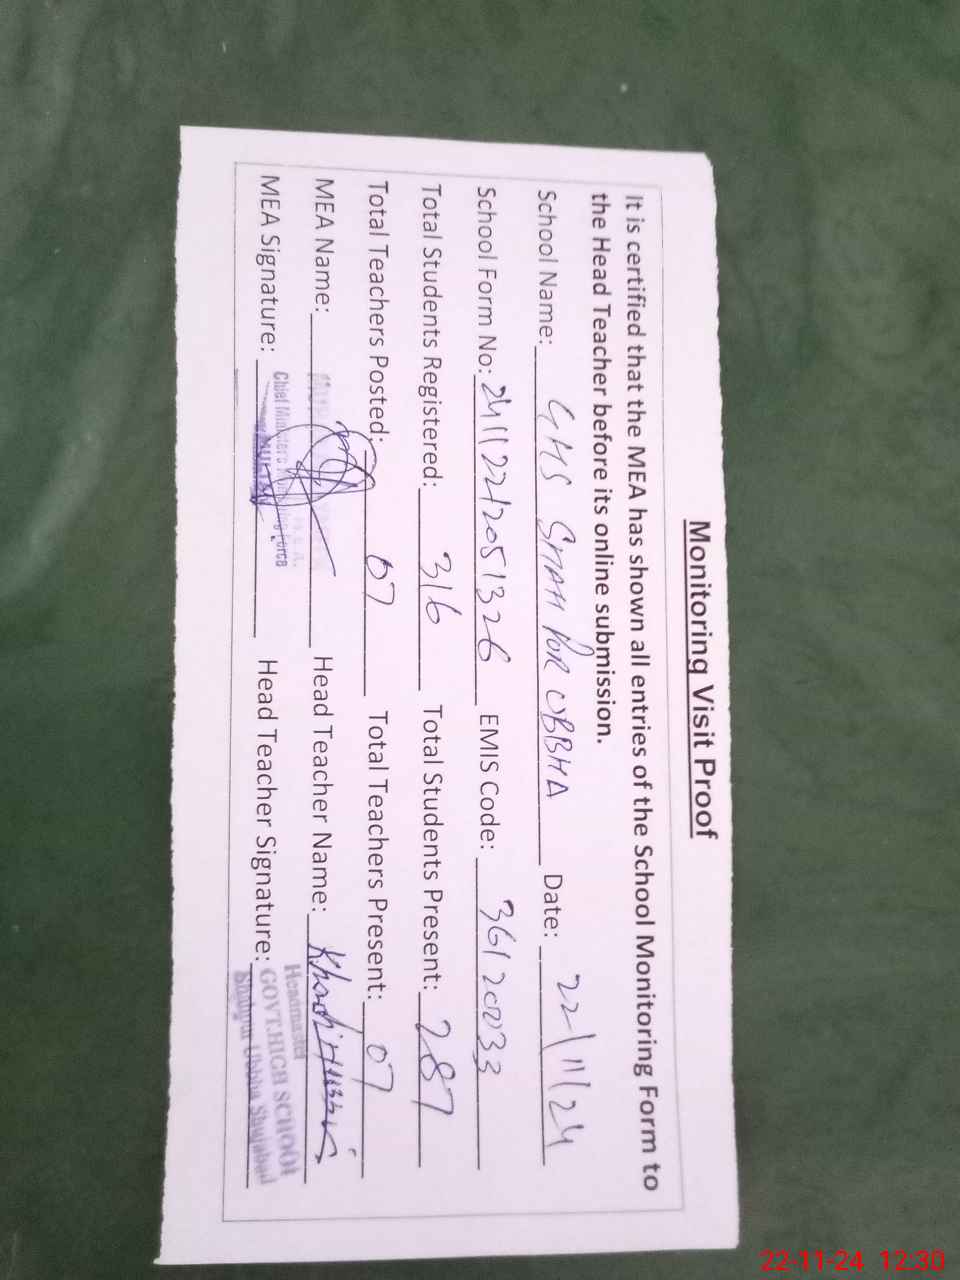 Monitoring Visit Proof
It is certified that the MEA has shown all entries of the School Monitoring Form to
the Head Teacher before its online submission.
School Name: GHS SHAH POR UBBHA Date: 22/11/24
School Form No: 24112212051326 EMIS Code: 36120033
Total Students Registered: 316 Total Students Present: 287
Total Teachers Posted: 07 Total Teachers Present: 07
MEA Name: Head Teacher Name: Khadim Hussain
MEA Signature: Head Teacher Signature:
Chief Minister's Monitoring Force
MULTAN
Headmaster
GOVT.HIGH SCHOOL
Shahpur Ubbha Shujabad
22-11-24 12:30